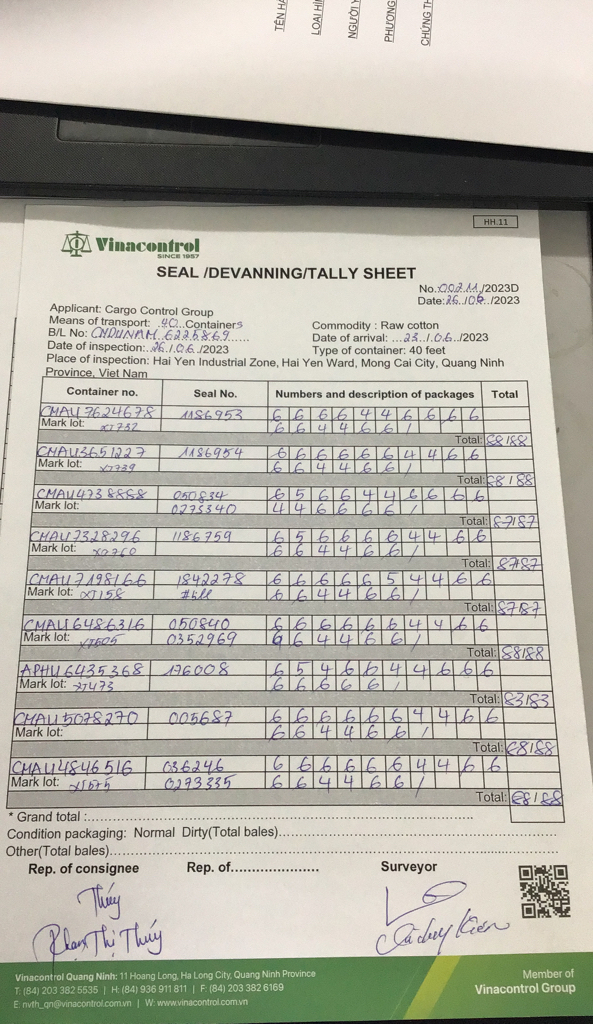 TÊN HÀ
LOẠI HÌ
NGƯỜI Y
PHƯƠNG
CHỨNG TH
HH.11
Vinacontrol
SINCE 1957
SEAL /DEVANNING/TALLY SHEET
No.00211/2023D
Date:26./06./2023
Applicant: Cargo Control Group
Means of transport: .40.Containers
Commodity : Raw cotton
B/L No: CNDUNAM 6225869
Date of arrival: ...23../.06.../2023
Date of inspection:.26./.06./2023
Type of container: 40 feet
Place of inspection: Hai Yen Industrial Zone, Hai Yen Ward, Mong Cai City, Quang Ninh
Province, Viet Nam
Container no. Seal No. Numbers and description of packages Total
CMAU7624678 1186953 6 6 6 6 4 4 6 6 6 6
Mark lot: XJ732 6 6 4 4 6 6 /
Total: 88/88
CMAU3651227 1186954 6 6 6 6 6 6 4 4 6 6
Mark lot: XJ739 6 6 4 4 6 6 /
Total: 88/88
CMAU4738888 050834 6 5 6 6 4 4 6 6 6 6
Mark lot: 0273340 4 4 6 6 6 6 /
Total: 87/87
CMAU7328296 1186759 6 5 6 6 6 6 4 4 6 6
Mark lot: XJ760 6 6 4 4 6 6 /
Total: 87/87
CMAU7198166 1842278 6 6 6 6 6 5 4 4 6 6
Mark lot: XJ158 6 6 4 4 6 6 /
Total: 87/87
CMAU6486316 050840 6 6 6 6 6 6 4 4 6 6
Mark lot: XJ505 0352969 6 6 4 4 6 6 /
Total: 88/88
APHU6435368 176008 6 5 4 6 6 4 4 6 6 6
Mark lot: XJ473 6 6 6 6 6 /
Total: 83/83
CMAU5078270 005687 6 6 6 6 6 6 4 4 6 6
Mark lot: 6 6 4 4 6 6 /
Total: 88/88
CMAU4846516 036246 6 6 6 6 6 6 4 4 6 6
Mark lot: XJ575 0273335 6 6 4 4 6 6 /
Total: 88/88
* Grand total :
Condition packaging: Normal Dirty(Total bales)
Other(Total bales)
Rep. of consignee Rep. of.................... Surveyor
Thúy
Phạm Thị Thúy
Vinacontrol Quang Ninh: 11 Hoang Long, Ha Long City, Quang Ninh Province
T: (84) 203 382 5535 | H: (84) 936 911 811 | F: (84) 203 382 6169
E: nvth_qn@vinacontrol.com.vn | W: www.vinacontrol.com.vn
Member of
Vinacontrol Group